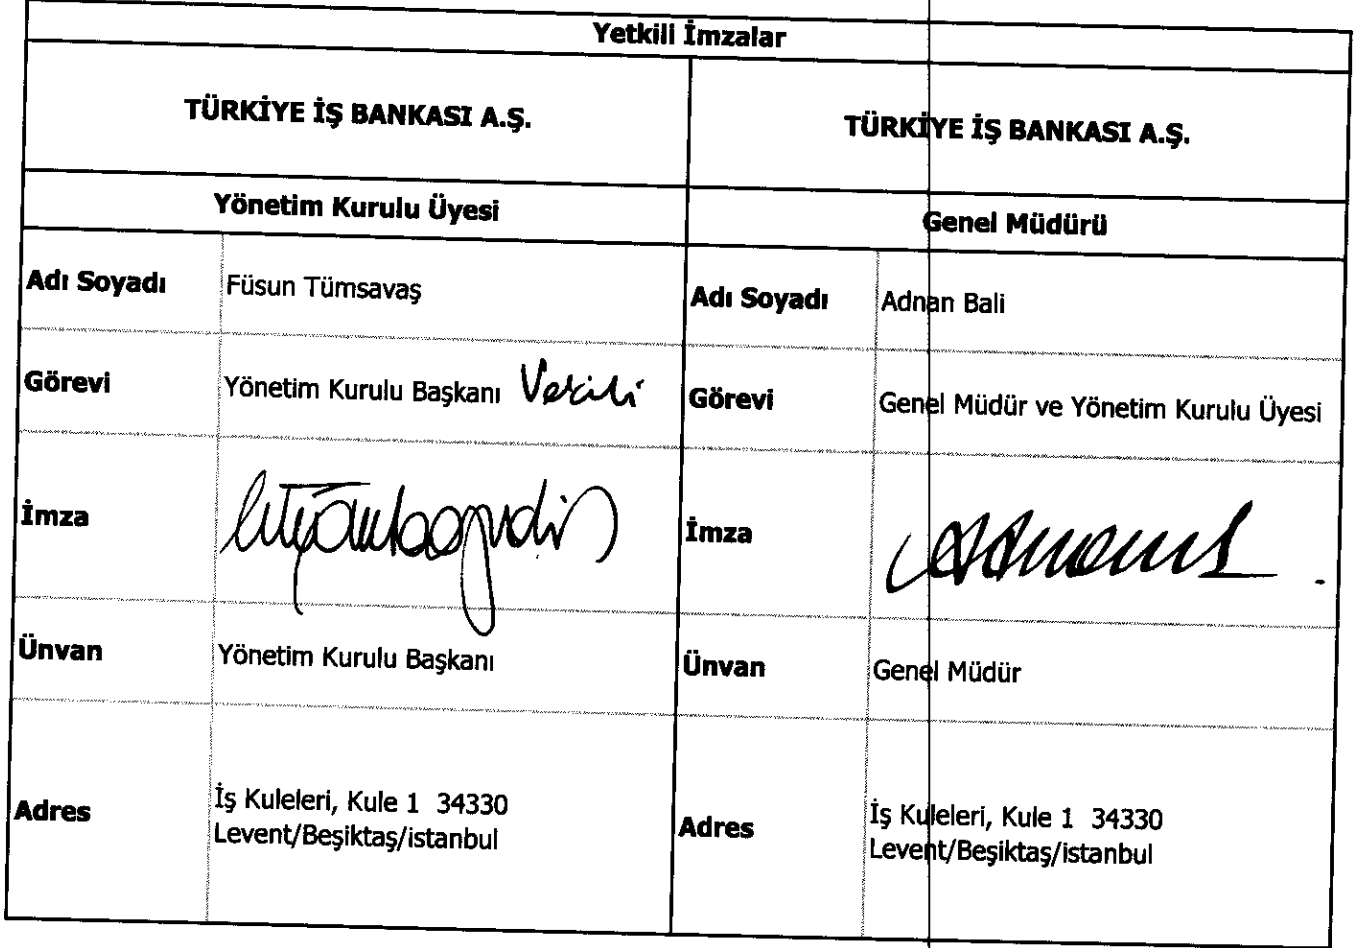 Yetkili İmzalar
TÜRKİYE İŞ BANKASI A.Ş.
TÜRKİYE İŞ BANKASI A.Ş.
Yönetim Kurulu Üyesi
Genel Müdürü
Adı Soyadı Füsun Tümsavaş
Adı Soyadı Adnan Bali
Görevi Yönetim Kurulu Başkanı Vekili
Görevi Genel Müdür ve Yönetim Kurulu Üyesi
İmza
İmza
Ünvan Yönetim Kurulu Başkanı
Ünvan Genel Müdür
Adres
İş Kuleleri, Kule 1 34330
Levent/Beşiktaş/istanbul
Adres
İş Kuleleri, Kule 1 34330
Levent/Beşiktaş/istanbul